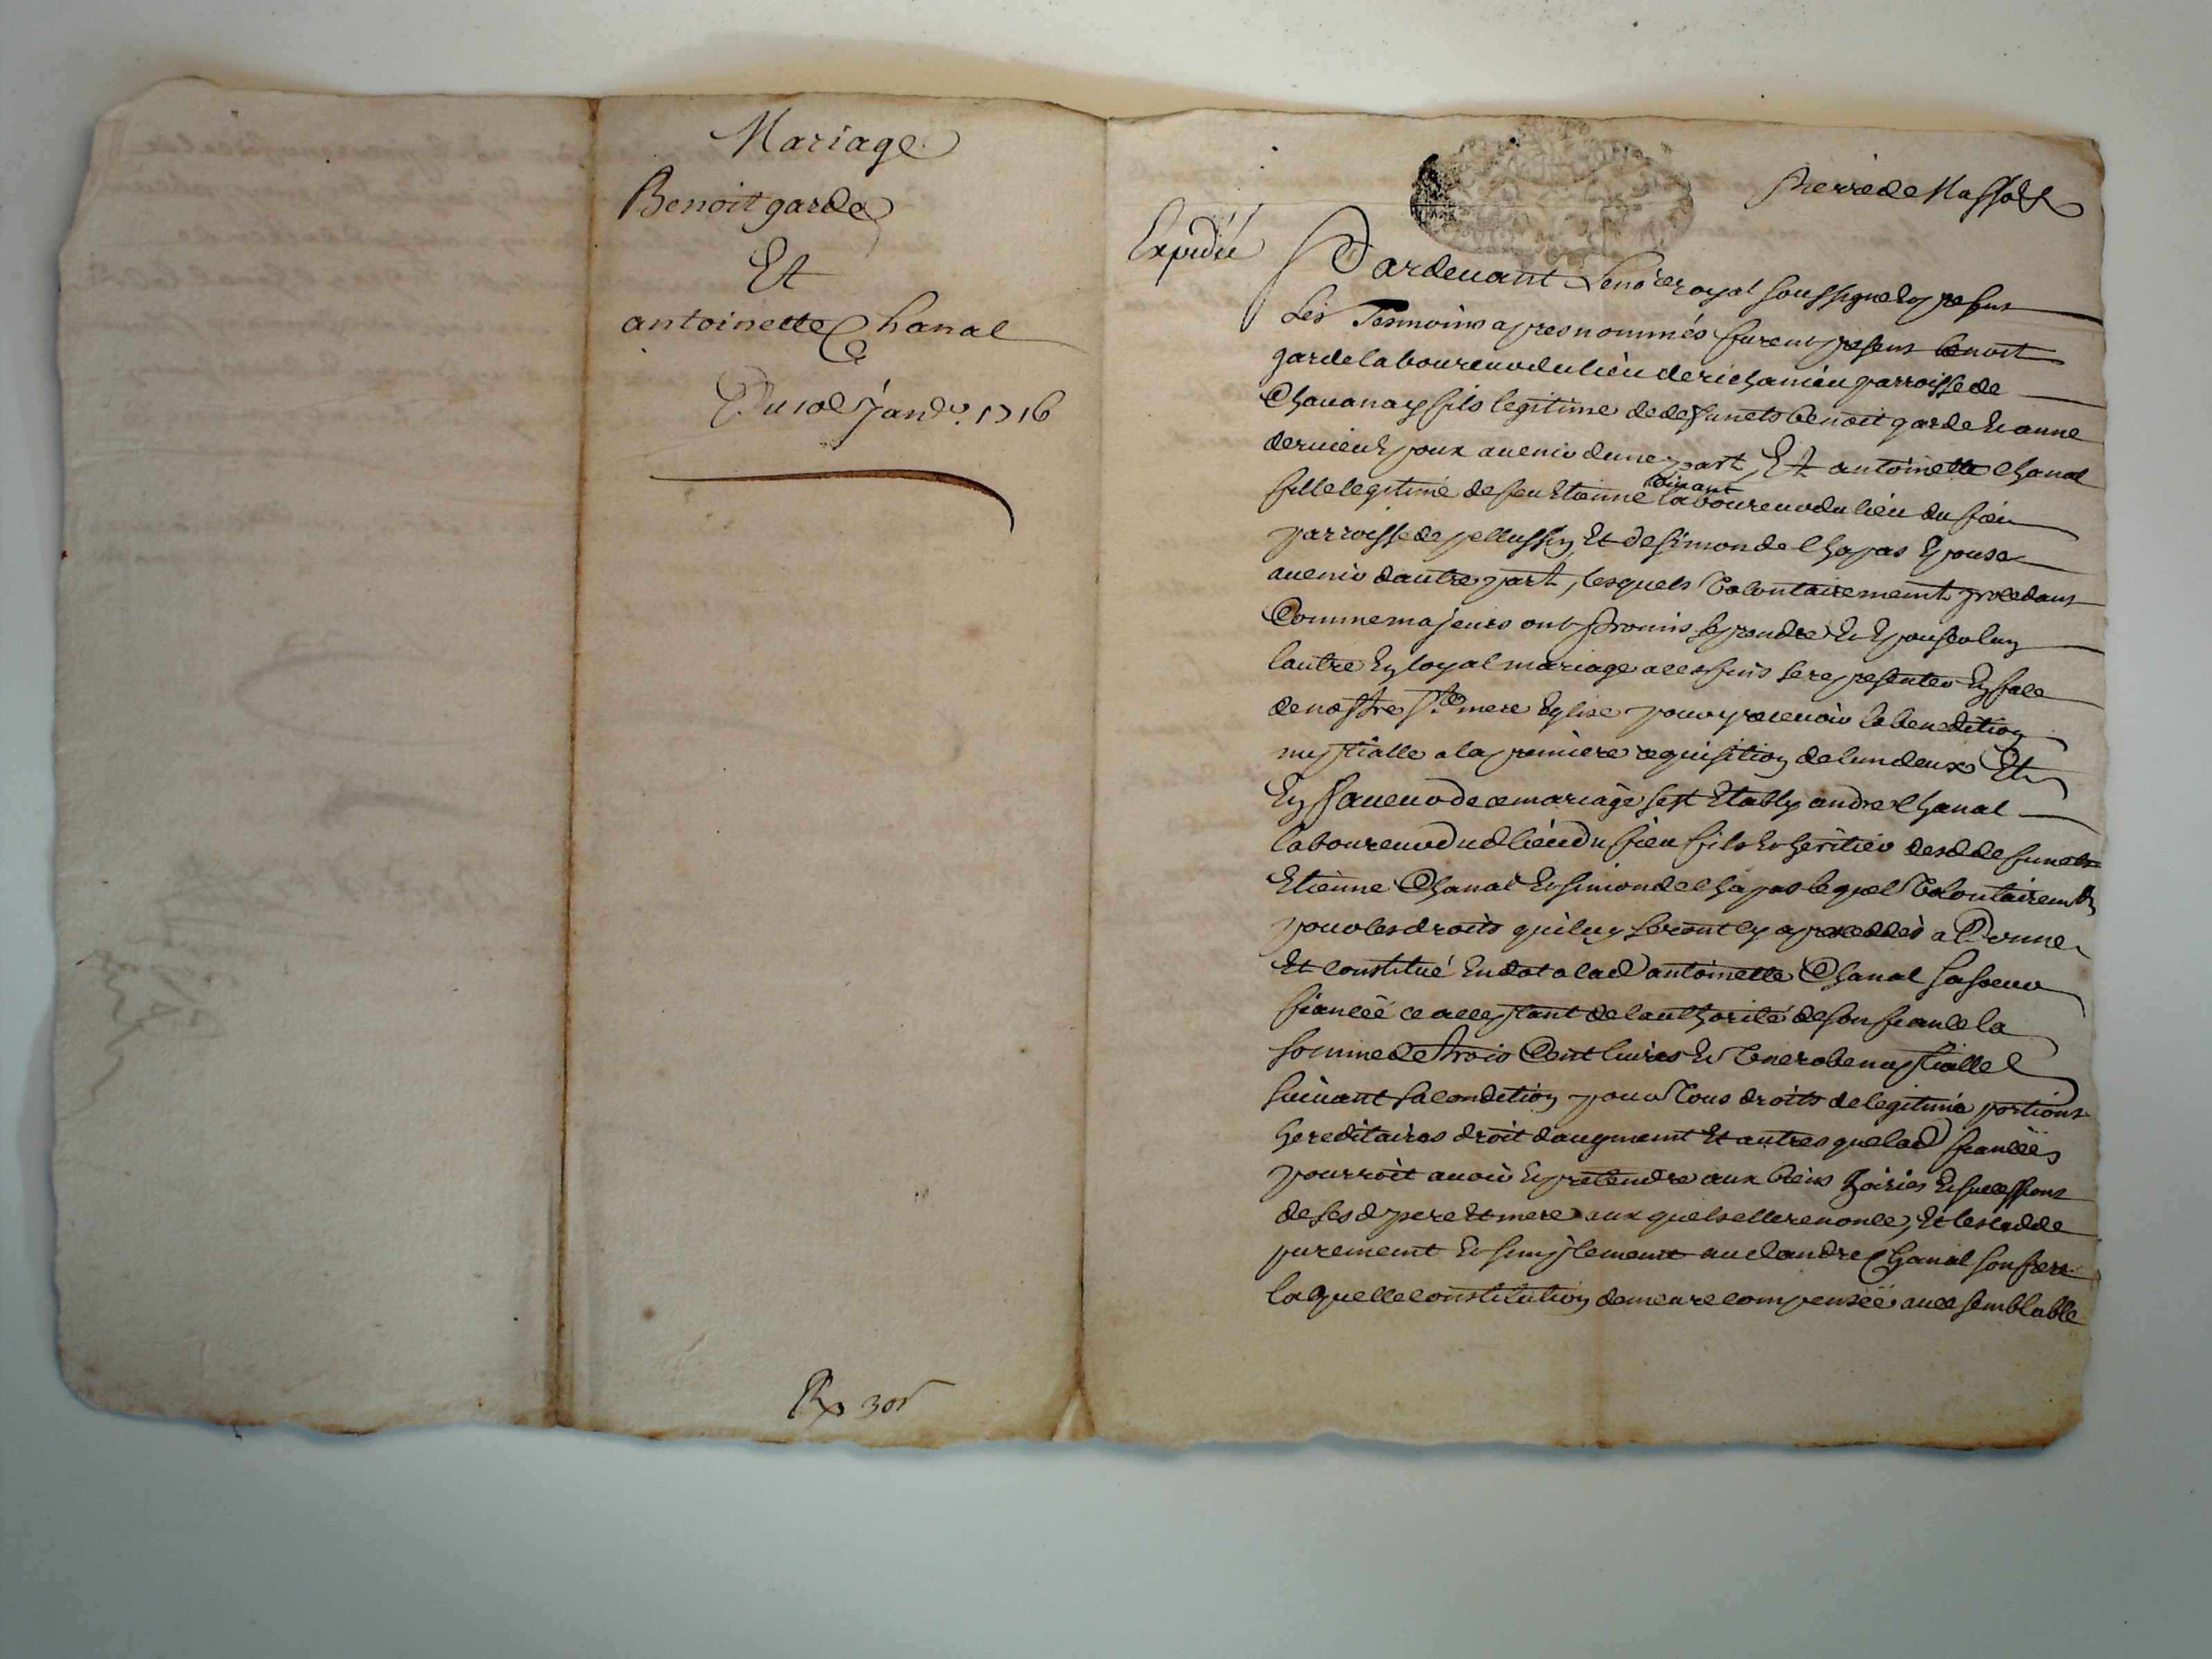 Mariage
Benoit garde
Et
antoinette Chanal
Du 10e Janvr. 1716
Rx 30s
pierre de Masso
Expediée
Pardevant Le nore royal soussigné Ey presens
Les Tesmoins apres nommés furent presens benoit
garde laboureur du lieu de richanieu parroisse de
Chavanay fils legitime de defuncts benoit garde Et anne
dervieux poux avenir dune part, Et antoinette Chanal
fille legitime de feu Etienne vivant laboureur du lieu du fieu
parroisse de pellussin Et de simonde Chapas Epouse
avenir dautre part, lesquels Volontairement procedans
Comme majeurs ont promis se prendre Et Epouser luy
lautre Ey loyal mariage a ces fins se representer Ey face
de nostre Ste mere Eglise pour y recevoir la benedition
nuptialle a la premiere requisition de lun deux Et
Ey faveur de ce mariage sest Etably andre Chanal
laboureur dud lieu du fieu fils Et heritier desd defuncts
Etienne Chanal Et simonde Chapas lequel Volontairemt
pour les droits qui luy seront cy apres cedés a Donné
Et Constitué En dot a lad antoinette Chanal sa soeur
fiancée ce acceptant de lauthorité de son fiancé la
somme de trois Cent livres Et Une robe nuptialle
suivant sa condition pour Tous droits de legitime portions
hereditaires droit daugment Et autres que lad fiancée
pourroit avoir Et pretendre aux biens hoiries Et successions
de sesd pere Et mere aux quels elle renonce, Et les cedde
purement Et simplement aud andre Chanal son frere
la quelle constitution demeure compensée avec semblable